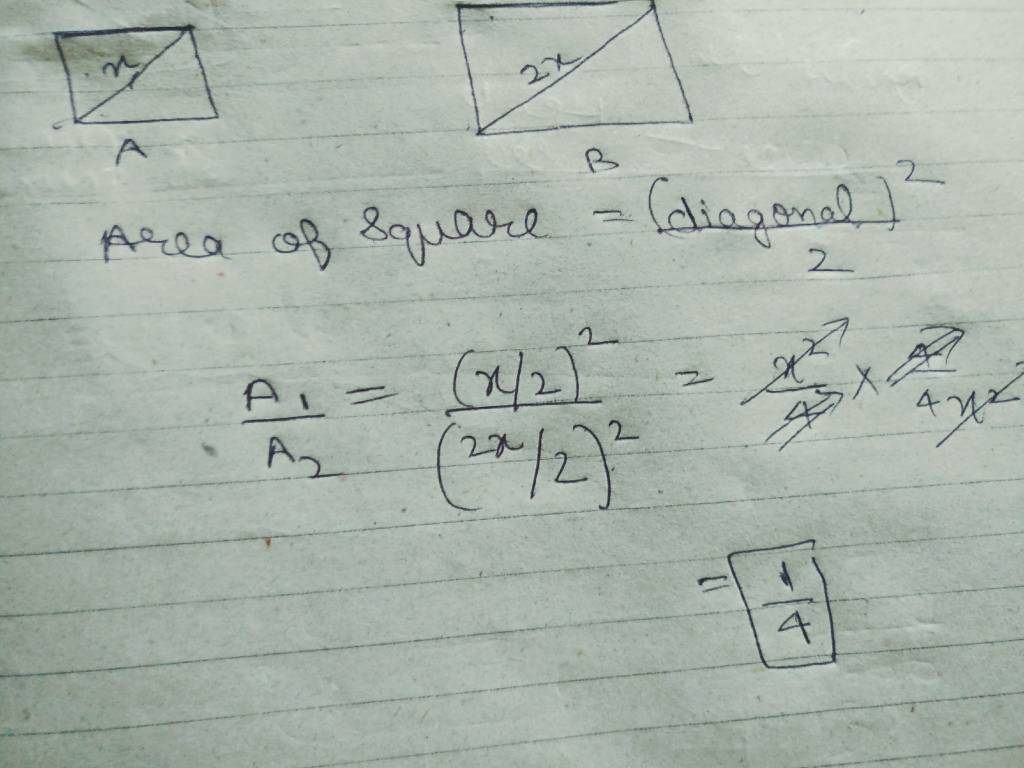 x 2x
A B
Area of Square = (diagonal)² / 2
A₁/A₂ = (x/2)² / (2x/2)² = x²/4 × 4/4x²
= 1/4